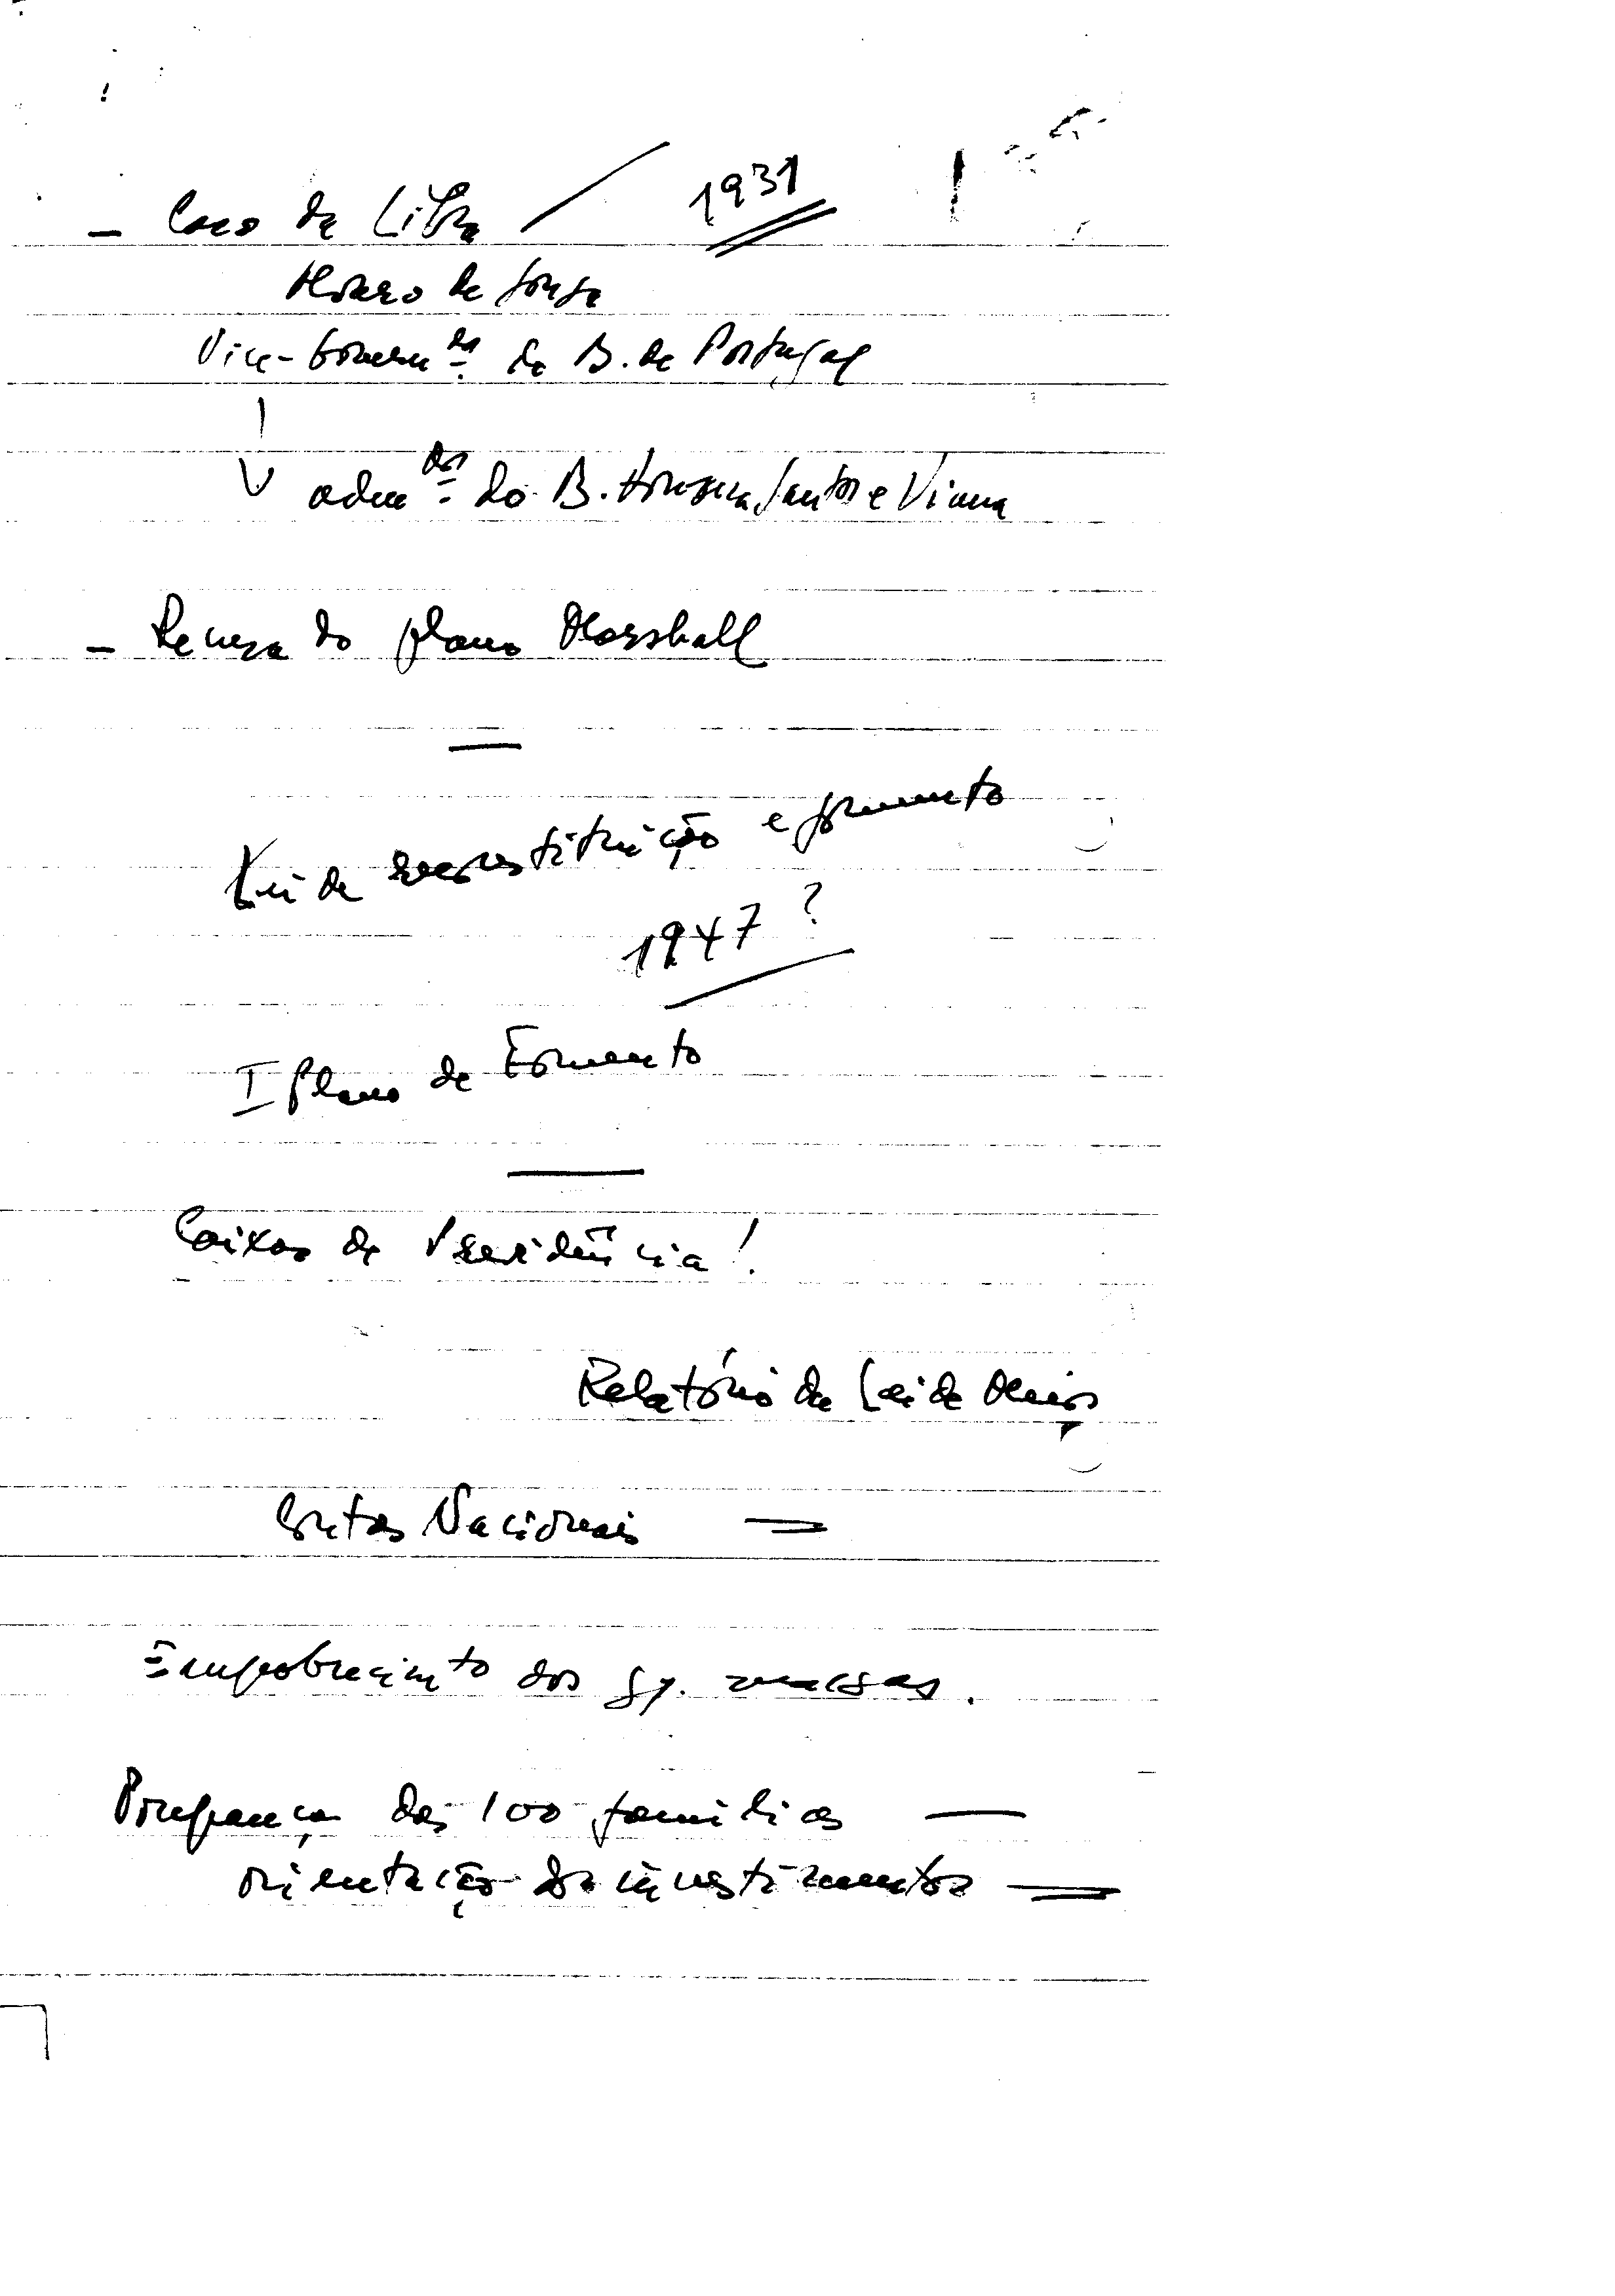 - Caso da Libra / 1931
Álvaro de Sousa
Vice-Govern.dor do B. de Portugal
adm.dor do B. Fonseca, Santos e Viana
- Recusa do plano Marshall
Lei de reconstituição e fomento
1947 ?
I Plano de Fomento
Caixas de Previdência !
Relatório da Lei de Meios
Contas Nacionais =
Empobrecimto das gr. massas.
Poupança das 100 famílias —
orientação dos investimentos =